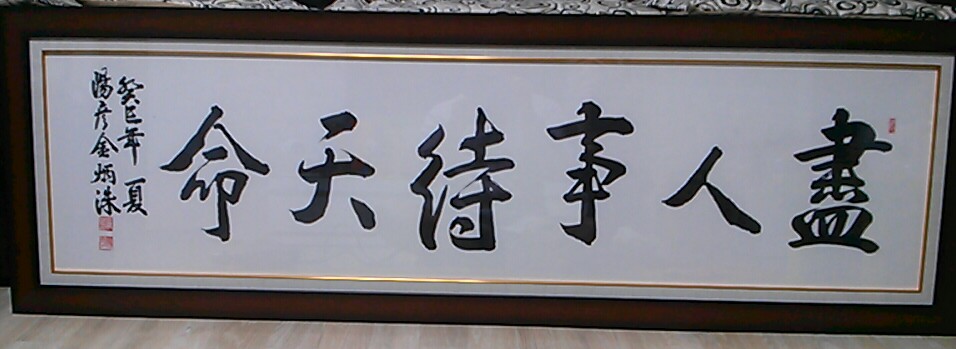 盡人事待天命
癸巳年 夏
陽彦金炳洙